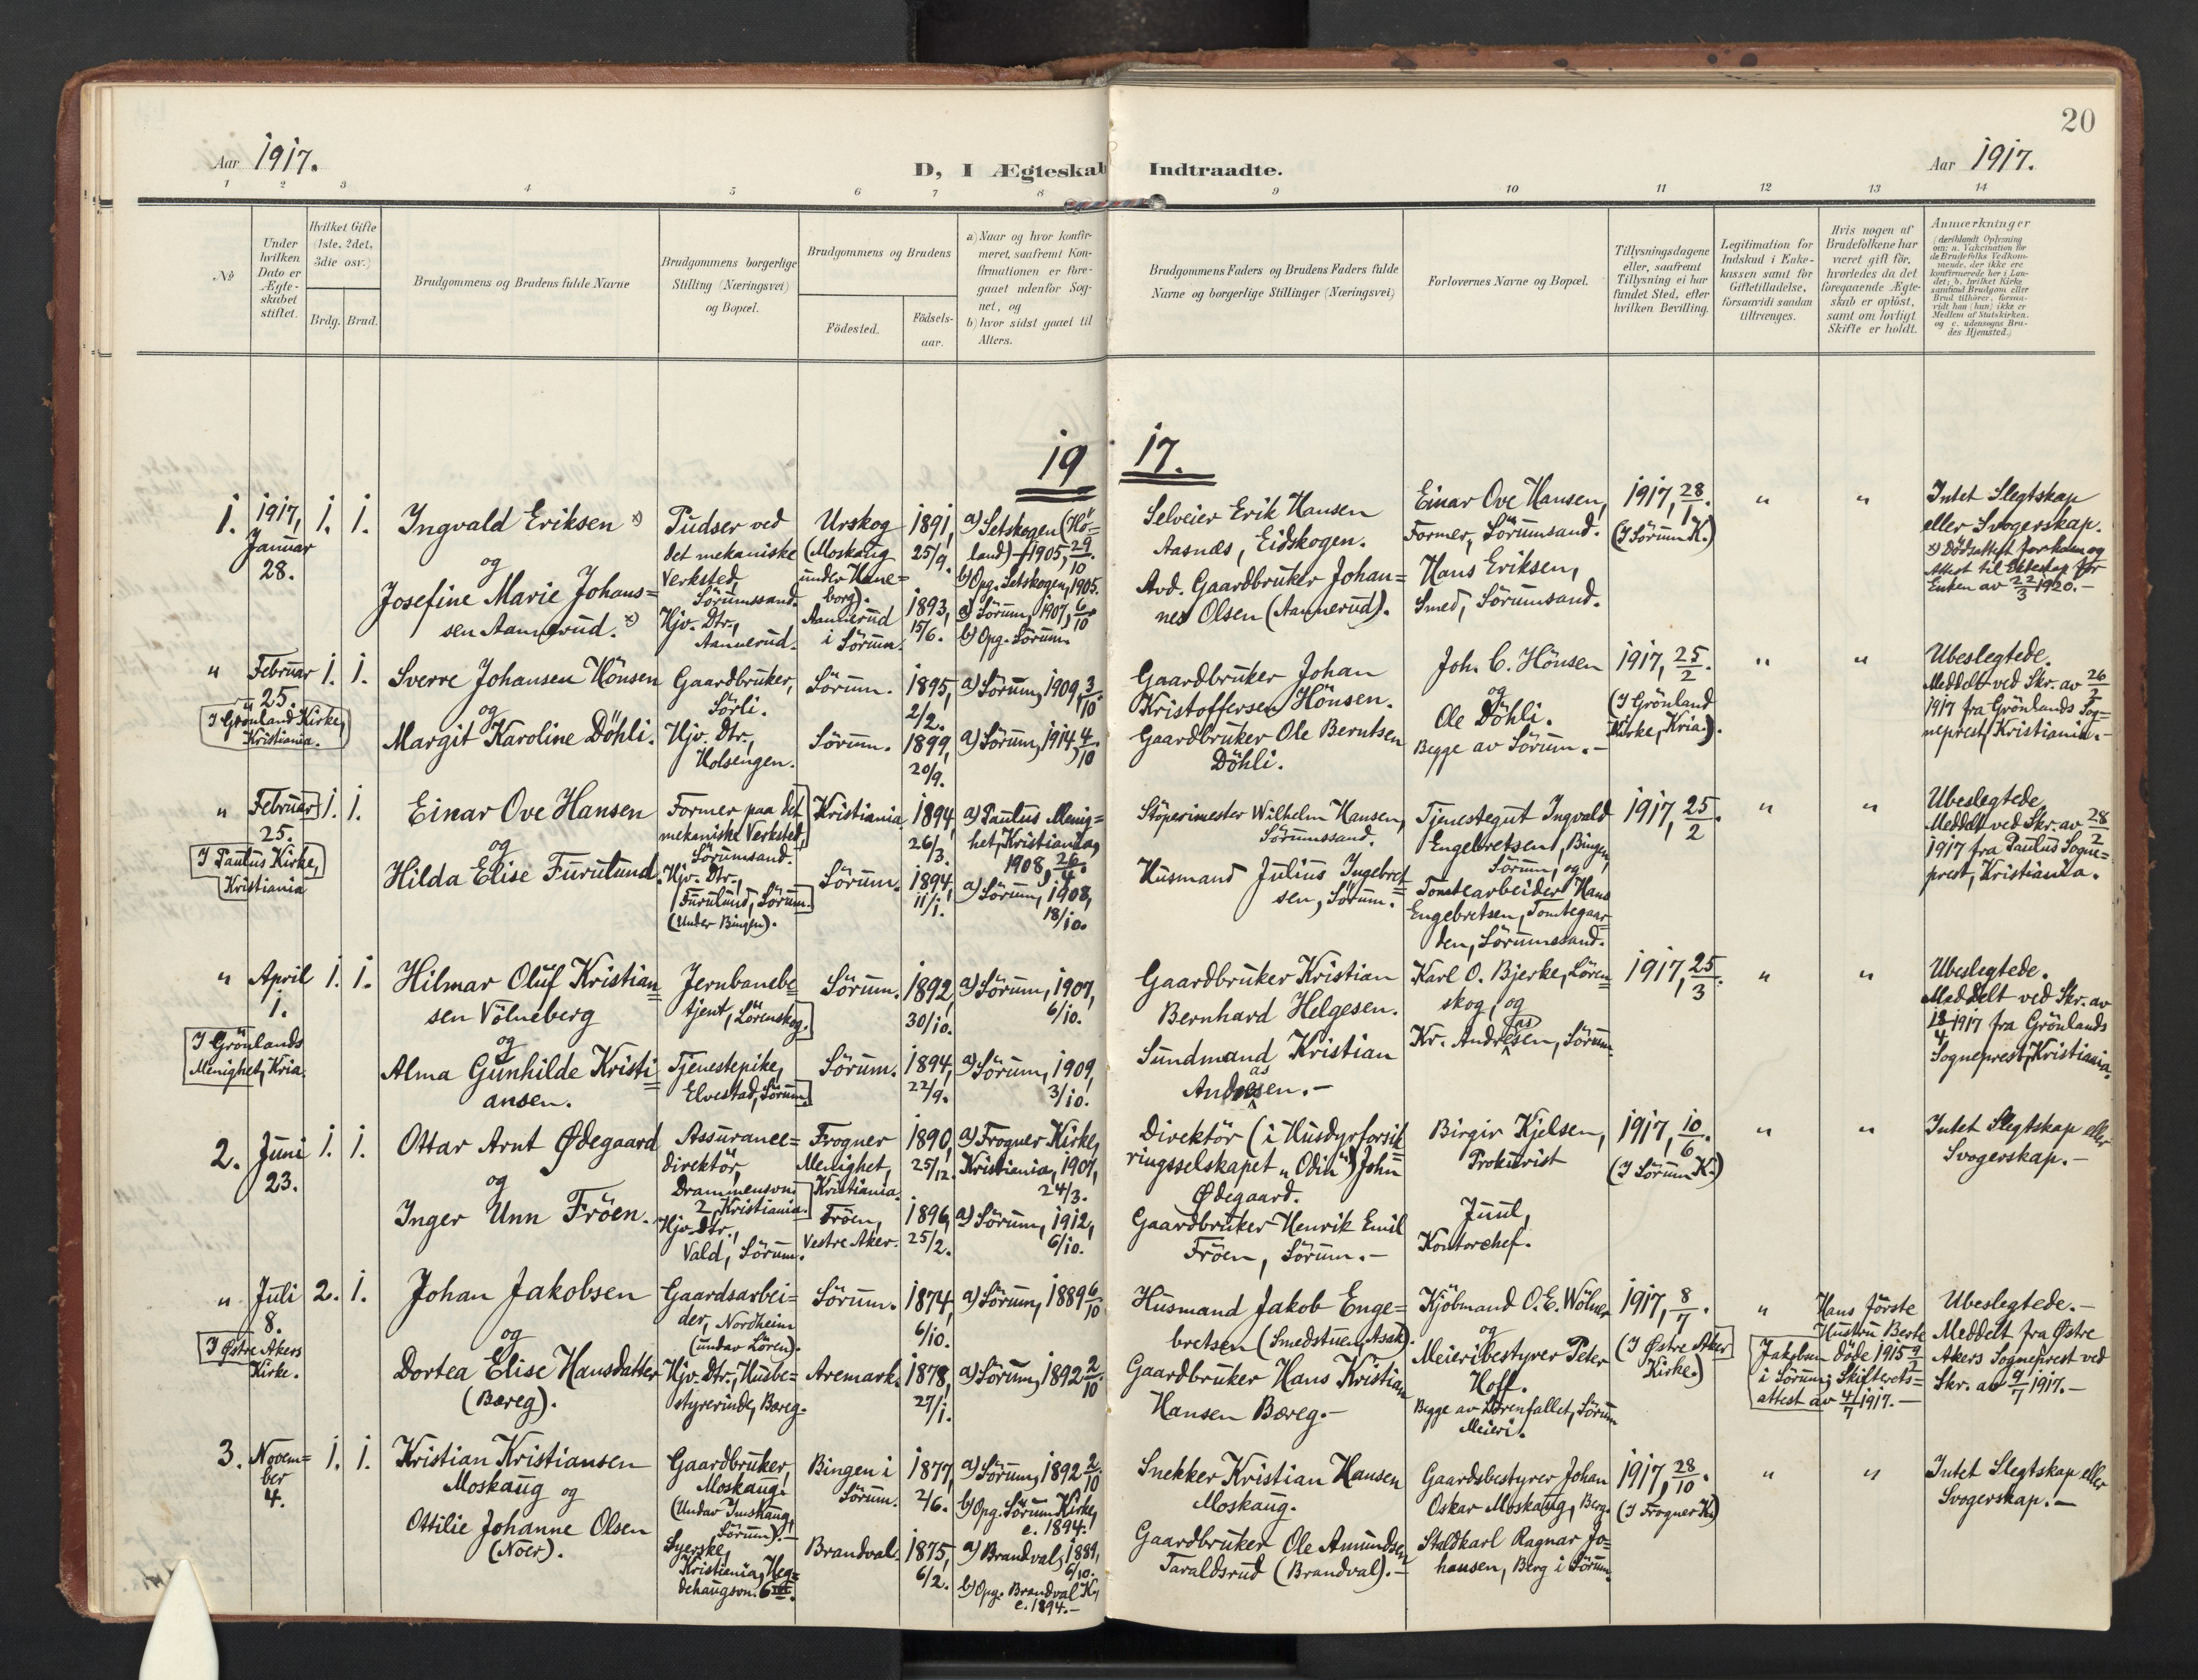 20
Aar 1917.
D, I Ægteskab Indtraadte.
Aar 1917.
1 2 3 4 5 6 7 8 9 10 11 12 13 14
No
Under hvilken Dato er Ægte-skabet stiftet.
Hvilket Gifte (1ste, 2det, 3die osv.)
Brdg. Brud.
Brudgommens og Brudens fulde Navne
Brudgommens borgerlige Stilling (Næringsvei) og Bopæl.
Brudgommens og Brudens
Födested.
Födsels-aar.
a) Naar og hvor konfir-
meret, saafremt Kon-
firmationen er fore-
gaaet udenfor Sog-
net, og
b) hvor sidst gaaet til
Alters.
Brudgommens Faders og Brudens Faders fulde
Navne og borgerlige Stillinger (Næringsvei)
Forlovernes Navne og Bopæl.
Tillysningsdagene
eller, saafremt
Tillysning ei har
fundet Sted, efter
hvilken Bevilling.
Legitimation for
Indskud i Enke-
kassen samt for
Giftetilladelse,
forsaavidt saadan
tiltrænges.
Hvis nogen af
Brudefolkene har
været gift för,
hvorledes da det
foregaaende Ægte-
skab er oplöst,
samt om lovligt
Skifte er holdt.
Anmærkninger
(deriblandt Oplysning
om: a. Vakcination for
de Brudefolks Vedkom-
mende, der ikke ere
konfirmerede her i Lan-
det; b. hvilket Kirke-
samfund Brudgom eller
Brud tilhörer, forsaa-
vidt han (hun) ikke er
Medlem af Statskirken.
og c. udensogns Bru-
des Hjemsted.)
1917.
1. 1917, Januar 28.
1. 1.
Ingvald Eriksen x)
og
Josefine Marie Johans=
sen Aannerud. x)
Pudser ved
det mekaniske
Verksted,
Sörumssand.
Hjv. Dtr.,
Aannerud.
Urskog
(Moskaug
under Hane=
borg).
Aannerud
i Sörum.
1891,
25/9.
1893,
15/6.
a) Setskogen (Hö=
land) 1905, 29/10.
b) Opg. Setskogen, 1905.
a) Sörum, 1907, 6/10
b) Opg. Sörum.
Selveier Erik Hansen
Aasnæs, Eidskogen.
Avd. Gaardbruker Johan=
nes Olsen (Aannerud).
Einar Ove Hansen,
Former, Sörumsand.
Hans Eriksen,
Smed, Sörumsand.
1917, 28/1.
(I Sörum K.)
" "
Intet Slegtskap
eller Svogerskap.
x) Dödsattest for ham og
Attest til Ekteskap for
Enken av 22/3 1920.-
" Februar 25.
I Grönland Kirke,
Kristiania.
1. 1.
Sverre Johansen Hönsen
og
Margit Karoline Döhli.
Gaardbruker,
Sörli.
Hjv. Dtr.,
Holsengen.
Sörum.
Sörum.
1895,
2/2.
1899,
20/9.
a) Sörum, 1909, 3/10
a) Sörum, 1914, 4/10
Gaardbruker Johan
Kristoffersen Hönsen.
Gaardbruker Ole Berntsen
Döhli.
Joh. C. Hönsen
og
Ole Döhli.
Begge av Sörum.-
1917, 25/2.
(I Grönland
Kirke, Kria.).
" "
Ubeslegtede.
Meddelt ved Skr. av 26/2
1917 fra Grönlands Sog=
neprest, Kristiania.-
" Februar 25.
I Paulus Kirke,
Kristiania
1. 1.
Einar Ove Hansen
og
Hilda Elise Furulund.
Former paa det
mekaniske Verksted,
Sörumsand.
Hjv. Dtr.,
Furulund, Sörum.
(under Bingen).
Kristiania.
Sörum.
1894,
26/3.
1894,
11/1.
a) Paulus Menig=
het, Kristiania,
1908, 26/4.
a) Sörum, 1908,
18/10.
Stöperimester Wilhelm Hansen,
Sörumssand.
Husmand Julius Ingebret=
sen, Sörum.
Tjenestegut Ingvald
Engebretsen, Bingen,
Sörum, og
Tomtearbeider Hans
Engebretsen, Tomtegaar=
den, Sörumssand.
1917, 25/2.
" "
Ubeslegtede.
Meddelt ved Skr. av 28/2
1917 fra Paulus Sogne=
prest, Kristiania.
" April 1.
I Grönlands
Menighet, Kria.
1. 1.
Hilmar Oluf Kristian=
sen Völneberg
og
Alma Gunhilde Kristi=
ansen.
Jernbanebe=
tjent, Lörenskog.
Tjenestepike,
Elvestad, Sörum.
Sörum.
Sörum.
1892,
30/10.
1894,
22/9.
a) Sörum, 1907,
6/10.
a) Sörum, 1909,
3/10.
Gaardbruker Kristian
Bernhard Helgesen.
Sundmand Kristian
Andresen.-
as
Karl O. Bjerke, Lören=
skog, og
Kr. Andresen, Sörum.
as
1917, 25/3.
" "
Ubeslegtede.
Meddelt ved Skr. av
18/4 1917 fra Grönlands
Sogneprest, Kristiania.
2. Juni 23.
1. 1.
Ottar Arnt Ødegaard
og
Inger Unn Fröen.
Assurance=
direktör,
Drammensvn.
2, Kristiania.
Hjv. Dtr.,
Vald, Sörum.
Frogner
Menighet,
Kristiania.
Fröen,
Vestre Aker.
1890,
25/12.
1896,
25/2.
a) Frogner Kirke,
Kristiania, 1907,
24/3.
a) Sörum, 1912,
6/10.
Direktör (i Husdyrforsik=
ringsselskapet „Odin") John
Ødegaard.
Gaardbruker Henrik Emil
Fröen, Sörum.-
Birgir Kjelsen,
Prokurist
Juul,
Kontorchef.
1917, 10/6.
(I Sörum K.)
" "
Intet Slegtskap eller
Svogerskap.-
" Juli 8.
I Østre Akers
Kirke.
2. 1.
Johan Jakobsen
og
Dortea Elise Hansdatter
(Bæreg).
Gaardsarbei=
der, Nordheim
(under Lören).
Hjv. Dtr., Husbe=
styrerinde, Bæreg.
Sörum.
Aremark.
1874,
6/10.
1878,
27/1.
a) Sörum, 1889 6/10
a) Sörum, 1892 2/10.
Husmand Jakob Enge=
bretsen (Smedstuen, Asak).
Gaardbruker Hans Kristian
Hansen Bæreg.-
Kjöbmand O. E. Wölner
og
Meieribestyrer Peter
Hoff.
Begge av Lörenfallet, Sörum
Meieri.
1917, 8/7.
(I Østre Aker
Kirke.)
"
Hans förste
Hustru Berte
Jakobsen döde 1915 9/2
i Sörum; Skifterets=
attest av 4/7 1917.-
Ubeslegtede.-
Meddelt fra Østre
Akers Sogneprest ved
Skr. av 9/7 1917.-
3. Novem=
ber
4.
1. 1.
Kristian Kristiansen
Moskaug og
Ottilie Johanne Olsen
(Noer).
Gaardbruker,
Moskaug.
(Under Imshaug,
Sörum).-
Syerske,
Kristiania, Heg=
dehaugsvn. 6
Bingen i
Sörum.
Brandval.
1877,
2/6.
1875,
6/2.
a) Sörum, 1892 2/10
b) Opg. Sörum Kirke,
c. 1894.
a) Brandval, 1889,
6/10.
b) Opg. Brandval K.,
c. 1894.-
Snekker Kristian Hansen
Moskaug.
Gaardbruker Ole Amundsen
Taraldsrud (Brandval).-
Gaardsbestyrer Johan
Oskar Moskaug, Berg.
Staldkarl Ragnar Jo=
hansen, Berg i Sörum.
1917, 28/10.
(I Frogner K.)
" "
Intet Slegtskap eller
Svogerskap.-